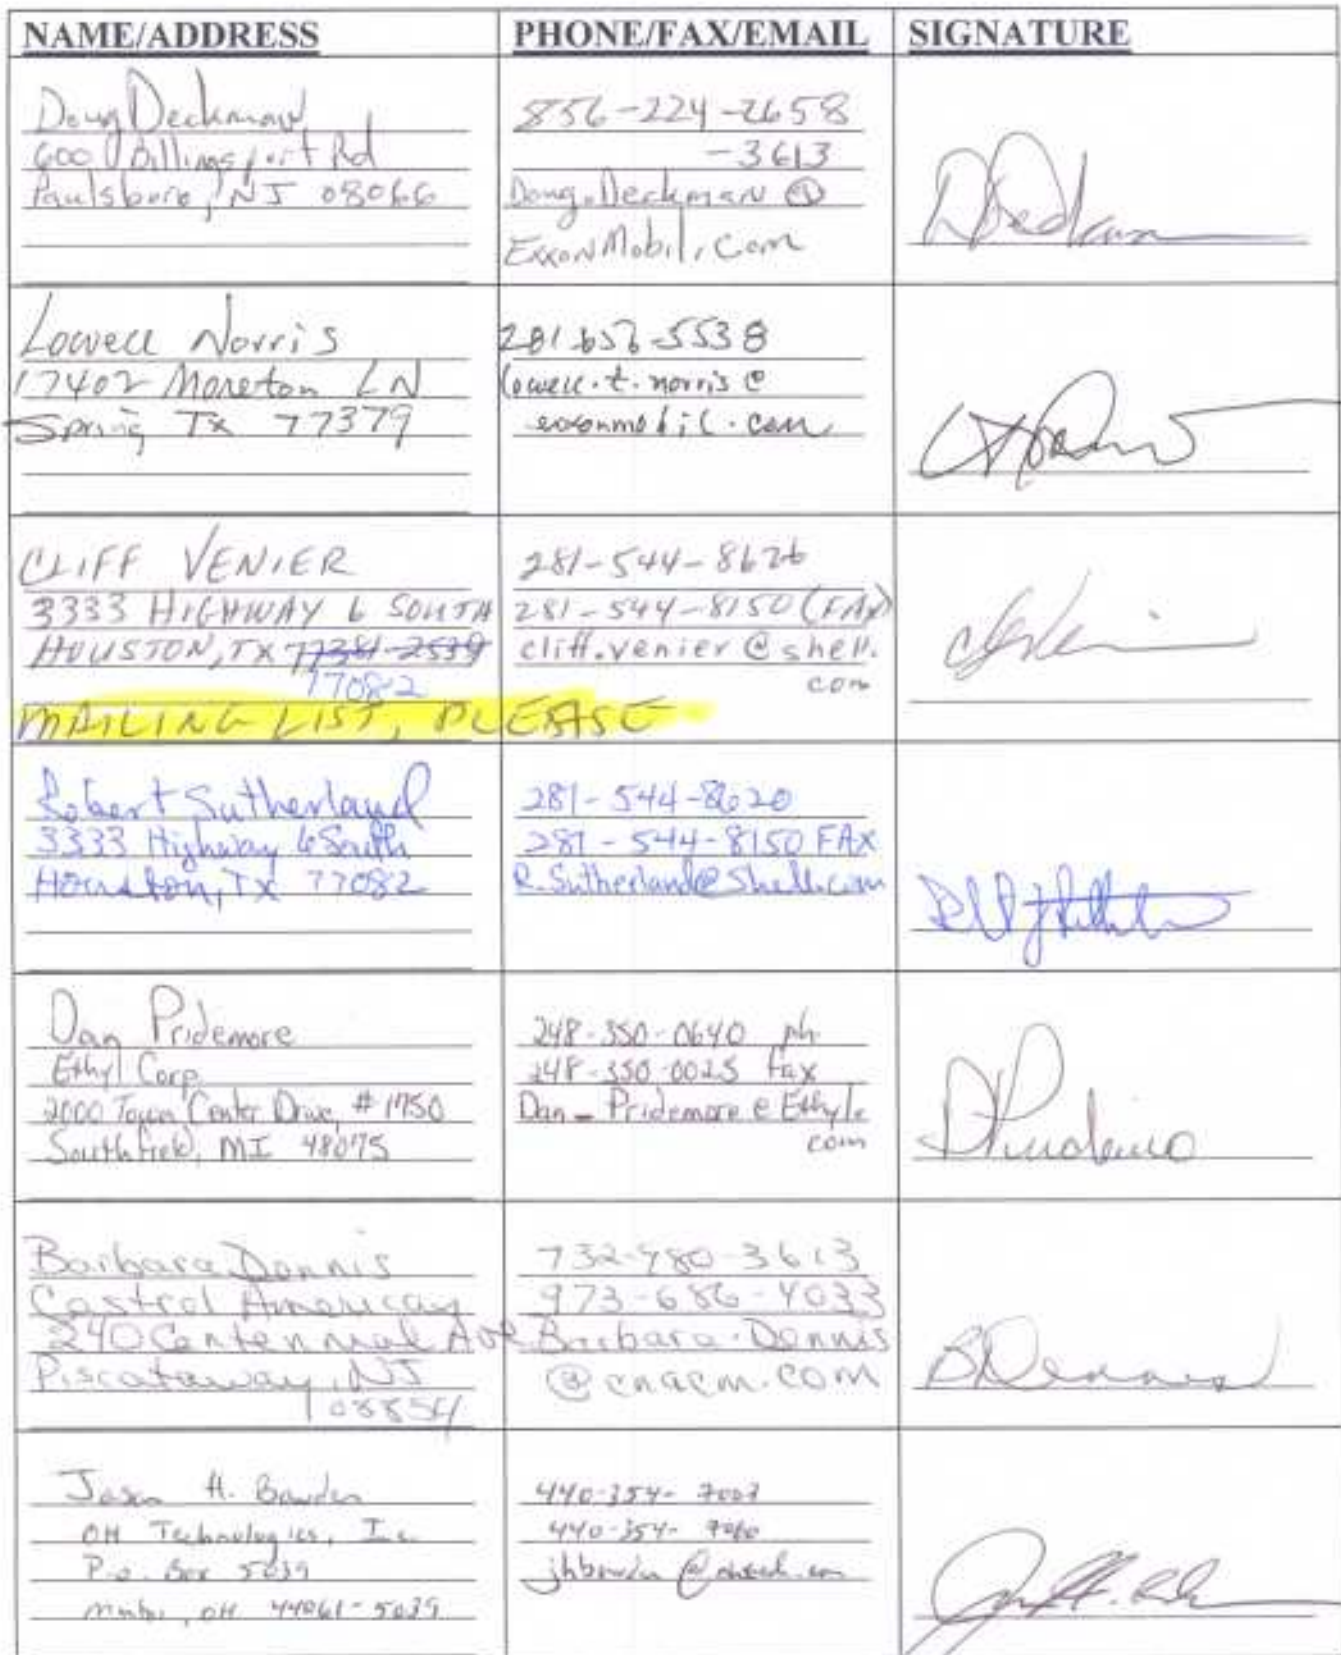 NAME/ADDRESS PHONE/FAX/EMAIL SIGNATURE
Doug Deckman
600 Billingsport Rd
Paulsboro, NJ 08066
856-224-2658
-3613
Doug.Deckman @
ExxonMobil.com
Lowell Norris
17402 Moreton LN
Spring Tx 77379
281-657-5538
lowell.t.norris@
exxonmobil.com
CLIFF VENIER
3333 HIGHWAY 6 SOUTH
HOUSTON, TX 77381-2539
77082
281-544-8626
281-544-8150 (FAX)
cliff.venier@shell.
com
MAILING LIST, PLEASE
Robert Sutherland
3333 Highway 6 South
Houston, Tx 77082
281-544-8620
281-544-8150 FAX
R.Sutherland@Shell.com
Dan Pridemore
Ethyl Corp
2000 Town Center Drive, #1750
Southfield, MI 48075
248-350-0640 ph
248-350-0025 fax
Dan_Pridemore@Ethyl.
com
Barbara Dennis
Castrol American
240 Centennial Ave
Piscataway, NJ
08854
732-980-3613
973-686-4033
Barbara.Dennis
@cnacm.com
Jason H. Bowden
OH Technologies, Inc.
P.O. Box 5039
Mentor, OH 44061-5039
440-354-7007
440-354-7080
jhbowden@ohtech.com